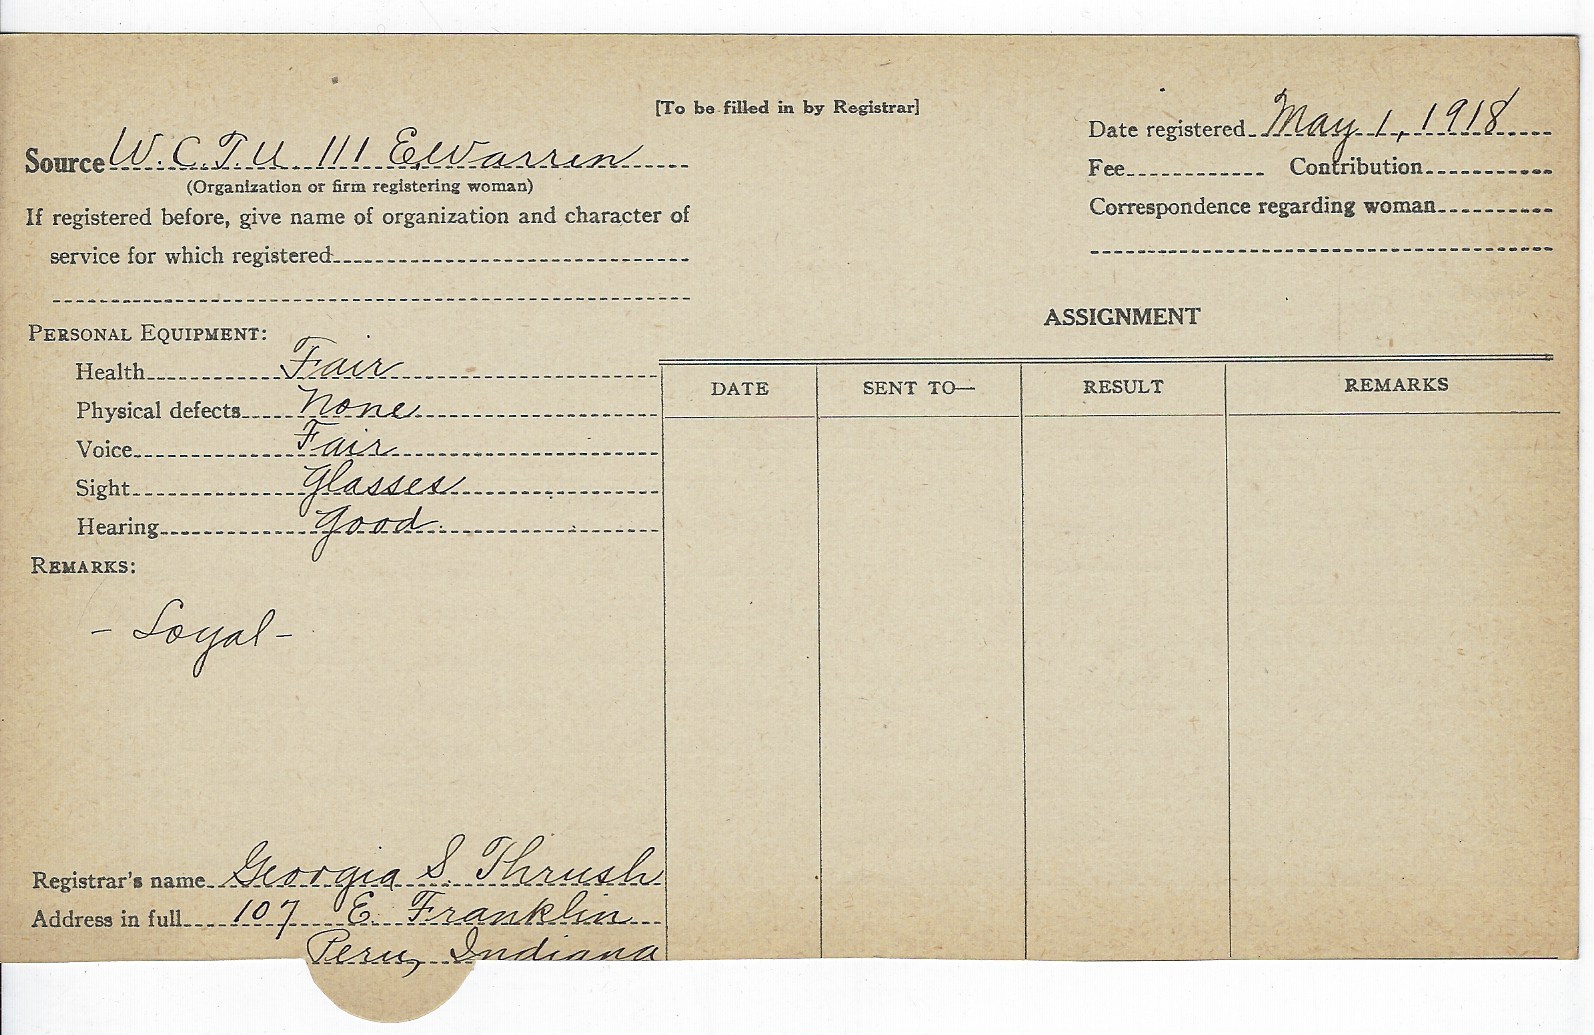 [To be filled in by Registrar]
Source W. C. T. U. 111 E. Warren
(Organization or firm registering woman)
If registered before, give name of organization and character of
service for which registered
Date registered May 1, 1918
Fee Contribution
Correspondence regarding woman
PERSONAL EQUIPMENT:
Health Fair
Physical defects None
Voice Fair
Sight Glasses
Hearing Good
REMARKS:
- Loyal -
ASSIGNMENT
DATE SENT TO— RESULT REMARKS
Registrar's name Georgia S. Thrush
Address in full 107 E. Franklin
Peru, Indiana